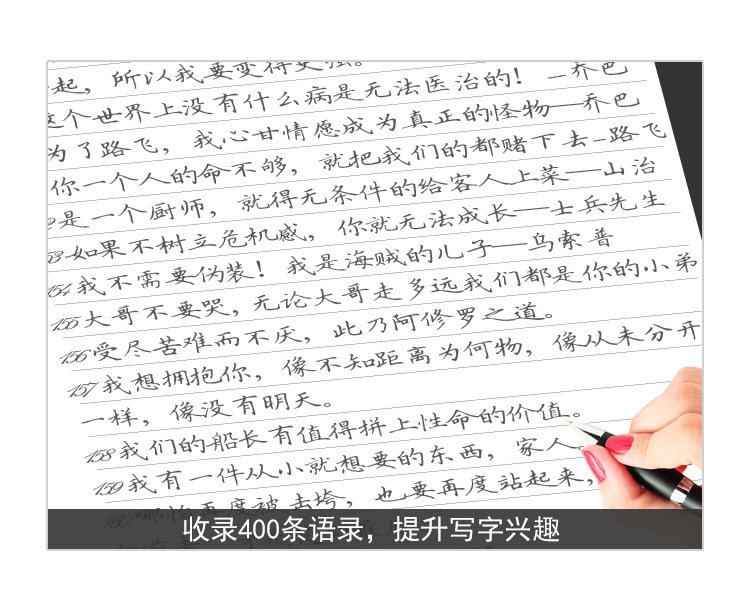 起，所以我要变得更强。
这个世界上没有什么病是无法医治的！—乔巴
为了路飞，我心甘情愿成为真正的怪物—乔巴
你一个人的命不够，就把我们的都赌下去—路飞
是一个厨师，就得无条件的给客人上菜—山治
153 如果不树立危机感，你就无法成长—士兵先生
154 我不需要伪装！我是海贼的儿子—乌索普
155 大哥不要哭，无论大哥走多远我们都是你的小弟
156 受尽苦难而不厌，此乃阿修罗之道。
157 我想拥抱你，像不知距离为何物，像从未分开
一样，像没有明天。
158 我们的船长有值得拼上性命的价值。
159 我有一件从小就想要的东西，家人。
160 哪怕再度被击垮，也要再度站起来，
收录400条语录，提升写字兴趣